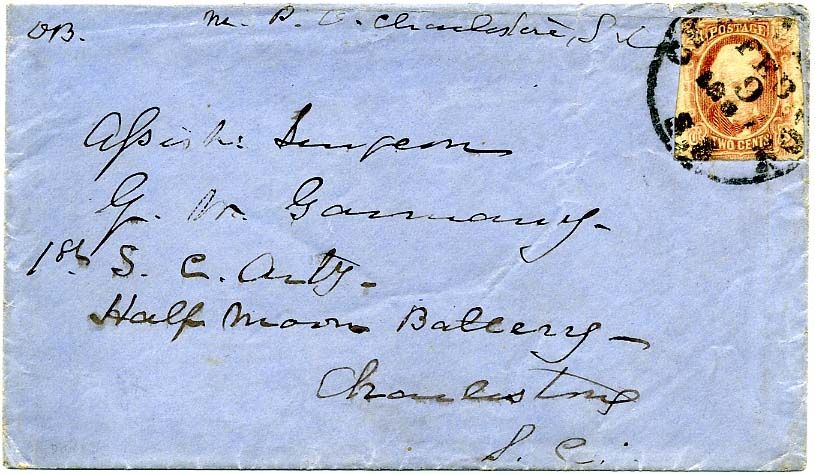 OB. M. P. O. Charleston, S.C.
POSTAGE
TWO CENTS
FEB
9
Assist. Surgeon
G. W. Garmany
1st S. C. Arty.
Half Moon Battery
Charleston
S. C.